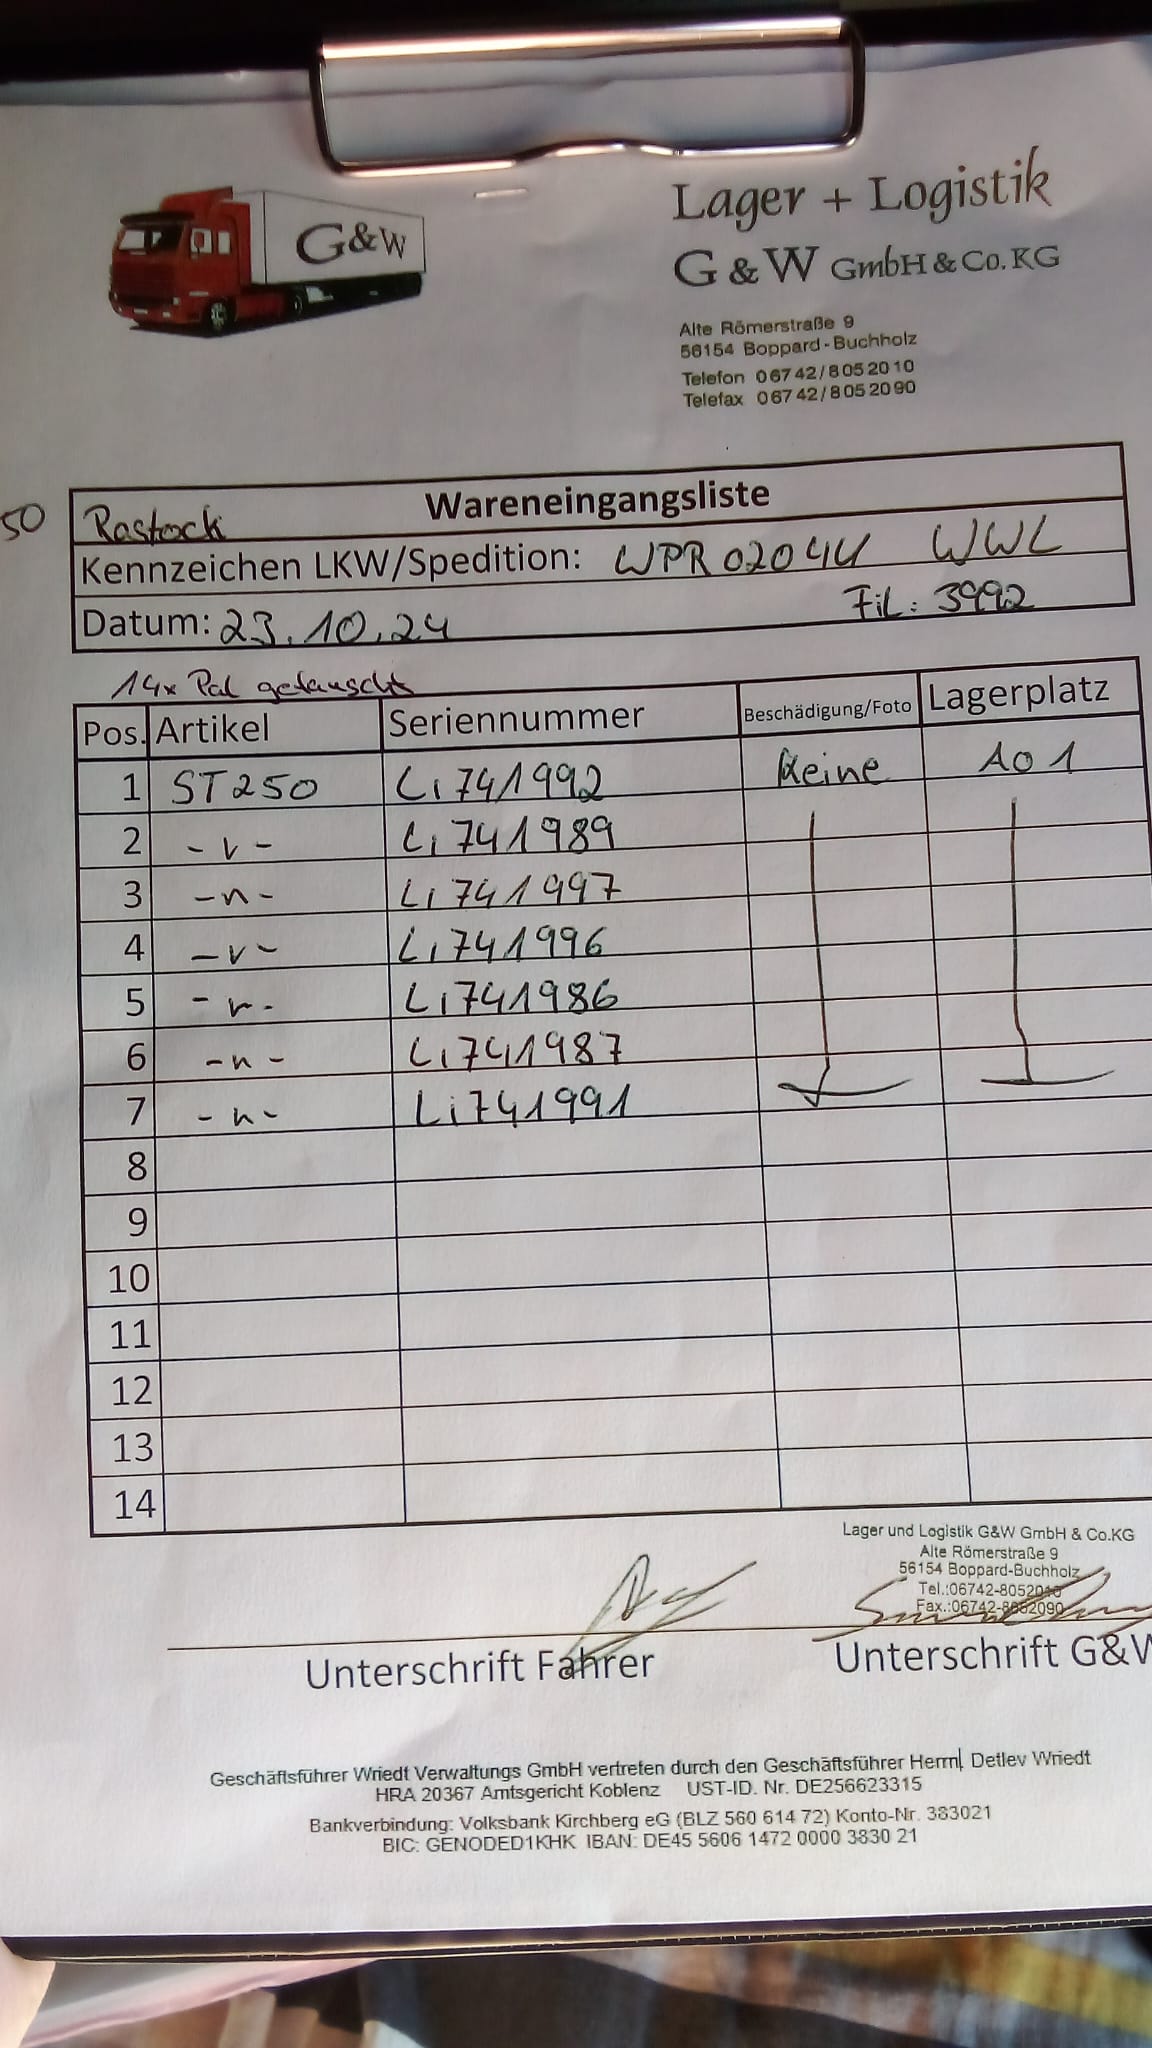 G&W
Lager + Logistik
G & W GmbH & Co. KG
Alte Römerstraße 9
56154 Boppard - Buchholz
Telefon 0 67 42 / 8 05 20 10
Telefax 0 67 42 / 8 05 20 90
50 Rostock Wareneingangsliste
Kennzeichen LKW/Spedition: WPR 0204U WWL
Datum: 23.10.24 Fil.: 3992
14x Pal getauscht
Pos. Artikel Seriennummer Beschädigung/Foto Lagerplatz
1 ST250 Li 741992 Keine A01
2 - " - Li 741989
3 - " - Li 741997
4 - " - Li 741996
5 - " - Li 741986
6 - " - Li 741987
7 - " - Li 741991
8
9
10
11
12
13
14
Lager und Logistik G&W GmbH & Co.KG
Alte Römerstraße 9
56154 Boppard-Buchholz
Tel.:06742-8052010
Fax.:06742-8052090
Unterschrift Fahrer Unterschrift G&W
Geschäftsführer Wriedt Verwaltungs GmbH vertreten durch den Geschäftsführer Herrn, Detlev Wriedt
HRA 20367 Amtsgericht Koblenz UST-ID. Nr. DE256623315
Bankverbindung: Volksbank Kirchberg eG (BLZ 560 614 72) Konto-Nr. 383021
BIC: GENODED1KHK IBAN: DE45 5606 1472 0000 3830 21